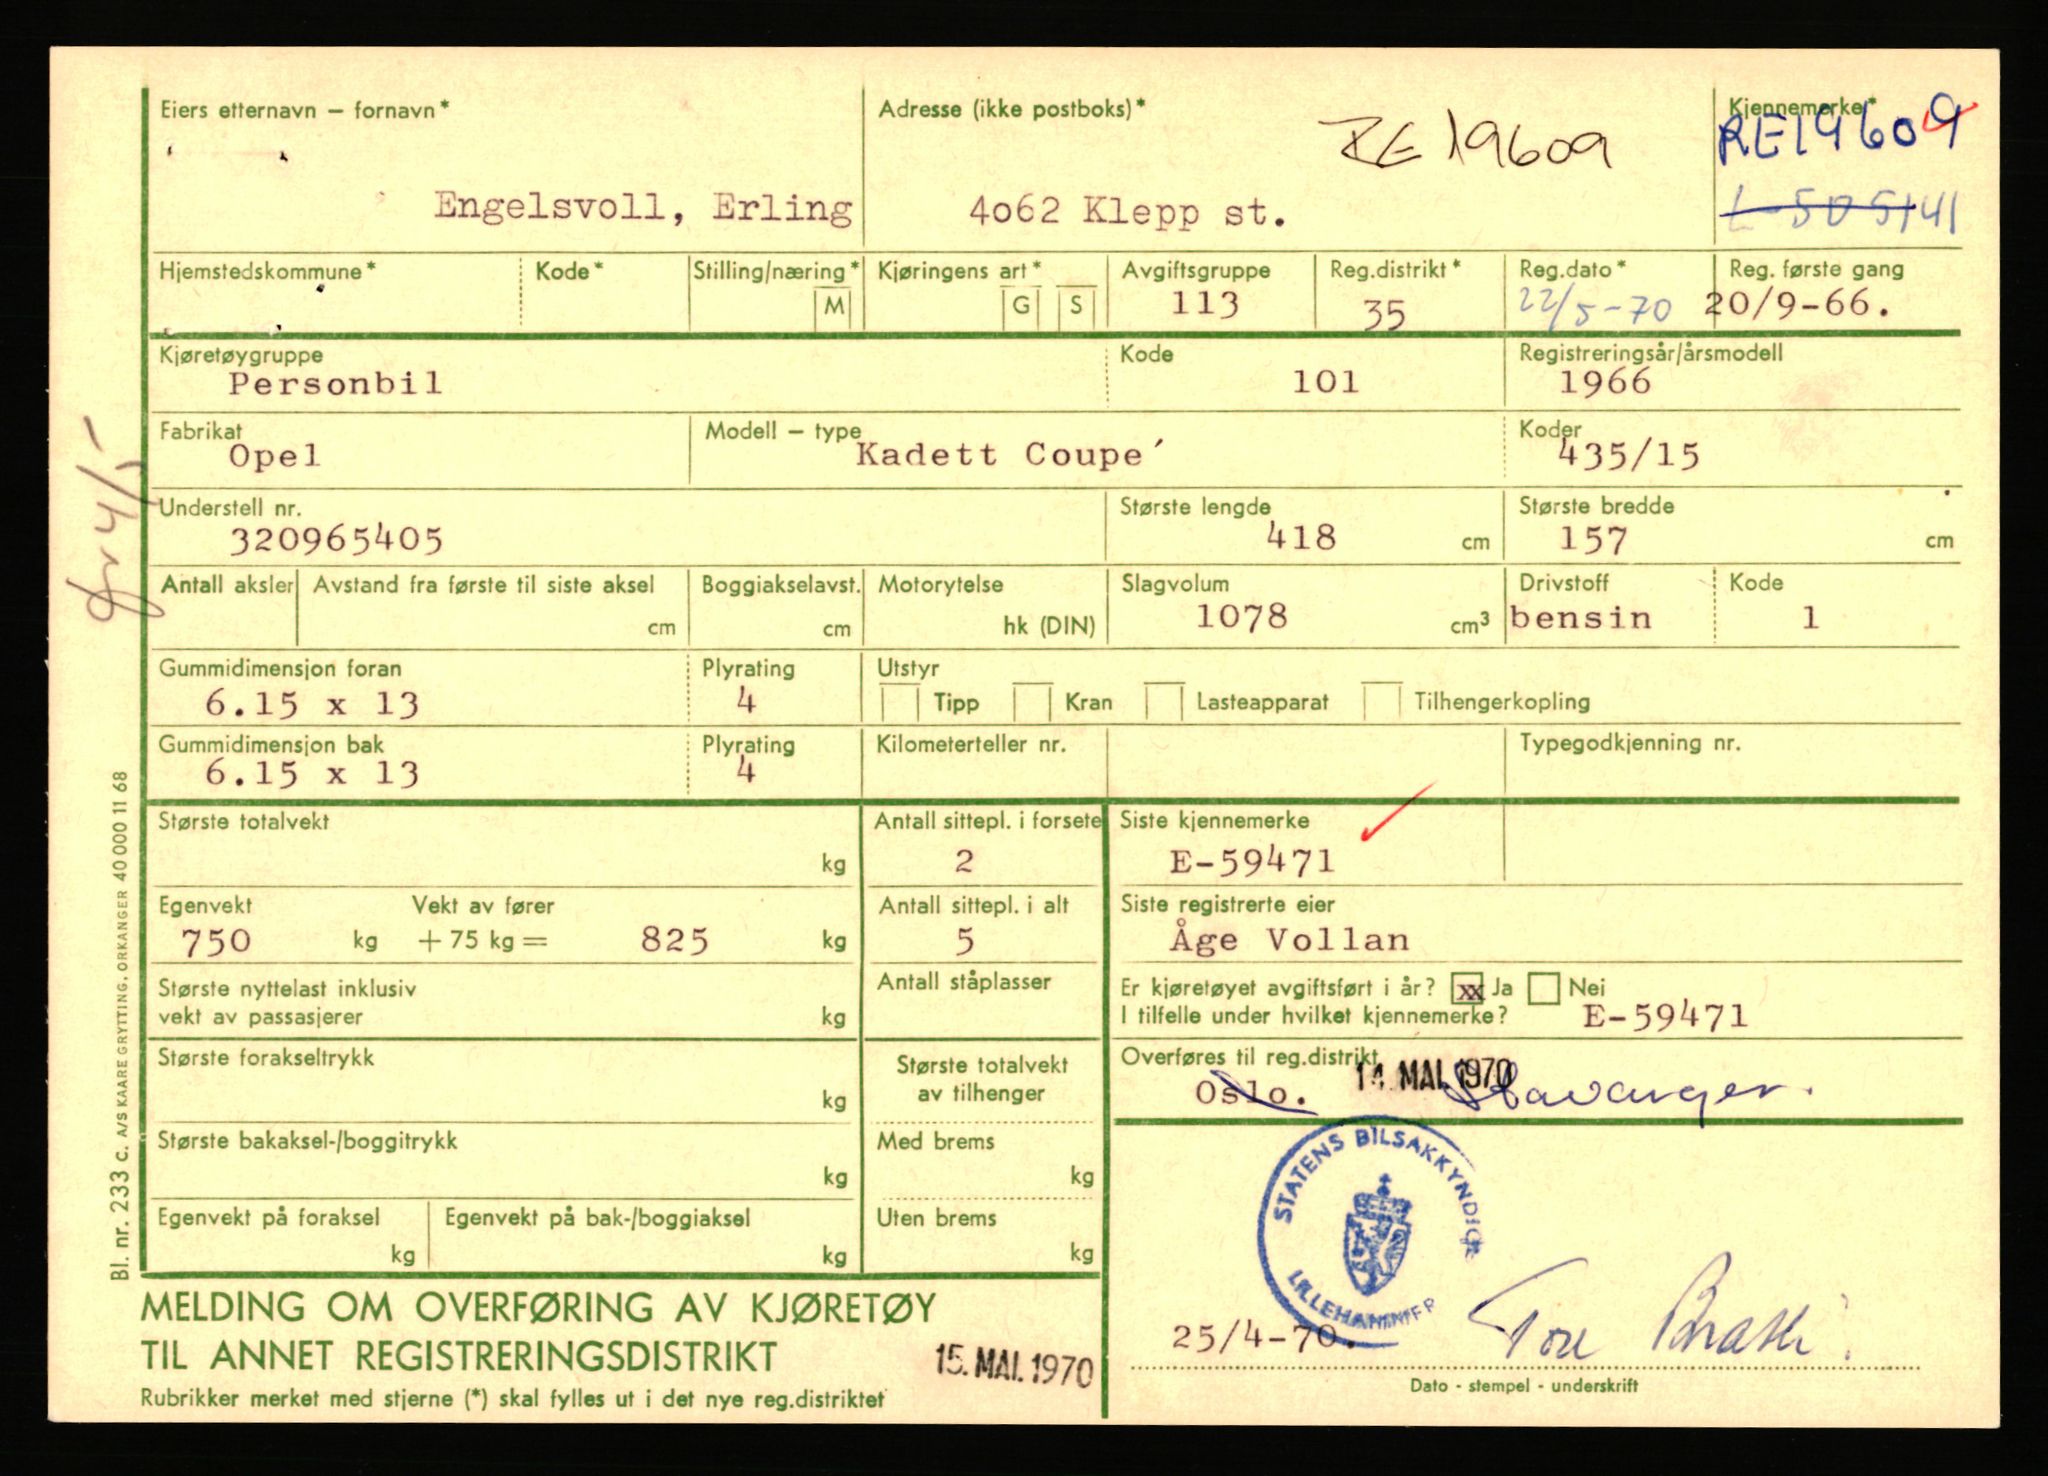 Eiers etternavn – fornavn*
Adresse (ikke postboks)*
Kjennemerke*
RE19609
RE19609
Engelsvoll, Erling
4062 Klepp st.
L-505141
Hjemstedskommune*
Kode*
Stilling/næring*
M
Kjøringens art*
G
S
Avgiftsgruppe
113
Reg.distrikt*
35
Reg.dato*
22/5-70
Reg. første gang
20/9-66.
Kjøretøygruppe
Personbil
Kode
101
Registreringsår/årsmodell
1966
Fabrikat
Opel
Modell – type
Kadett Coupe´
Koder
435/15
Understell nr.
320965405
Største lengde
418 cm
Største bredde
157 cm
Antall aksler
Avstand fra første til siste aksel
cm
Boggiakselavst.
cm
Motorytelse
hk (DIN)
Slagvolum
1078 cm³
Drivstoff
bensin
Kode
1
Gummidimensjon foran
6.15 x 13
Plyrating
4
Utstyr
Tipp
Kran
Lasteapparat
Tilhengerkopling
Gummidimensjon bak
6.15 x 13
Plyrating
4
Kilometerteller nr.
Typegodkjenning nr.
Største totalvekt
kg
Antall sittepl. i forsete
2
Siste kjennemerke
E-59471
Egenvekt
750 kg
Vekt av fører
+ 75 kg = 825 kg
Antall sittepl. i alt
5
Siste registrerte eier
Åge Vollan
Største nyttelast inklusiv
vekt av passasjerer
kg
Antall ståplasser
Er kjøretøyet avgiftsført i år? xx Ja Nei
I tilfelle under hvilket kjennemerke? E-59471
Største forakseltrykk
kg
Største totalvekt
av tilhenger
Overføres til reg.distrikt
14. MAI. 1970
Oslo. Stavanger.
Største bakaksel-/boggitrykk
kg
Med brems
kg
Egenvekt på foraksel
kg
Egenvekt på bak-/boggiaksel
kg
Uten brems
kg
STATENS BILSAKKYNDIGE
LILLEHAMMER
MELDING OM OVERFØRING AV KJØRETØY
TIL ANNET REGISTRERINGSDISTRIKT
15. MAI. 1970
25/4-70.
Rubrikker merket med stjerne (*) skal fylles ut i det nye reg.distriktet
Dato - stempel - underskrift
Bl. nr. 233 c. A/S KAARE GRYTTING, ORKANGER 40 000 11 68